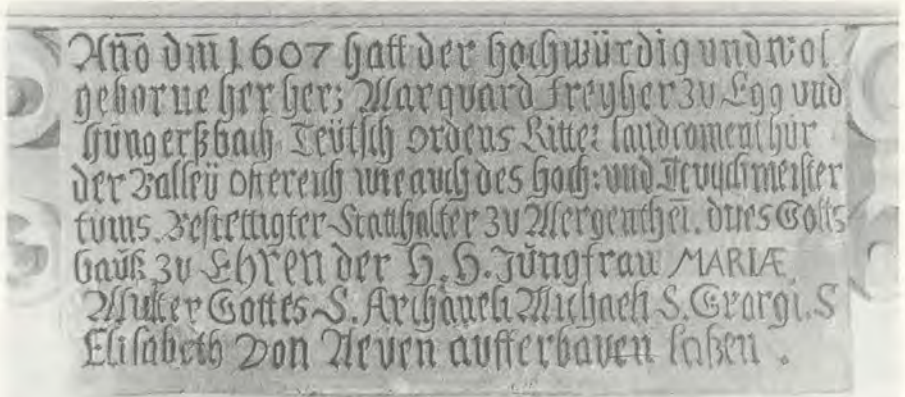 Año dm̄ 1607 hatt der hochwürdig und wol
geborne her her: Marquard Freyher zu Egg und
Hüngerßbach Teütsch ordens Ritter landcomenthür
der Balleÿ Ostereich wie auch des hoch: und Teutschmeister
tums. Bestettigter Statthalter zu Mergenthei. dises Gotts
hauß zu Ehren der H. H. Jüngfrau MARIÆ
Mutter Gottes S. Archangeli Michaeli S. Georgi. S
Elisabeth Von Neven aufferbaven laßen .